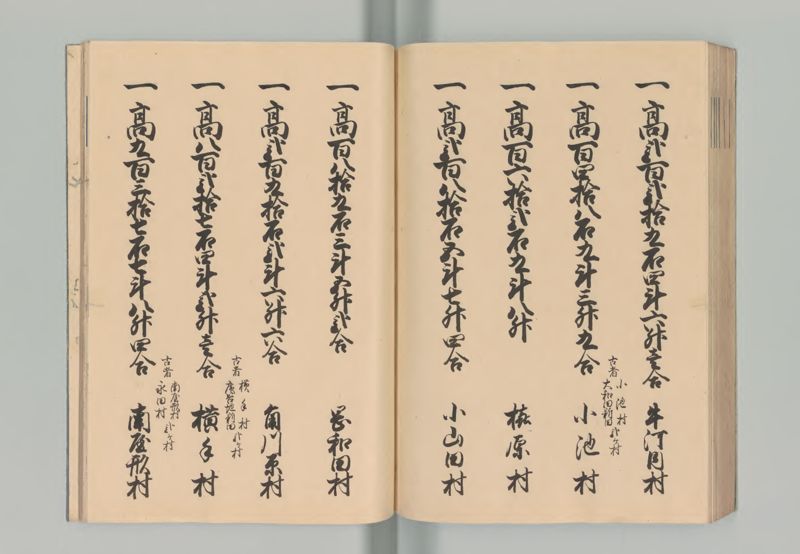 一高弐百弐拾九石四斗六升壱合 牛汀月村
一高百四拾八石九斗三升九合 小池村
古者 小池村 大和田新田 弐ヶ村
一高百六拾弐石九斗八升 椿原村
一高弐百八拾石五斗七升四合 小山田村
一高百八拾九石三斗五升弐合 岩和田村
一高弐百九拾石弐斗六升六合 市川原村
一高八百弐拾七石四斗弐升壱合 横手村
古者 横手村 庵谷地新田 弐ヶ村
一高九百三拾七石七斗八升四合 南屋形村
古者 南屋形村 永田村 弐ヶ村